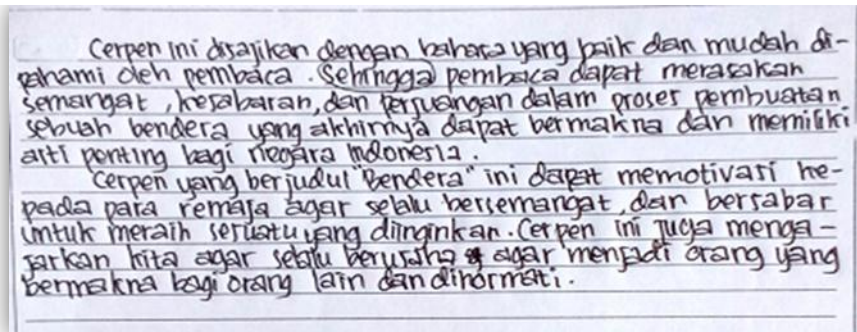 Cerpen ini disajikan dengan bahasa yang baik dan mudah di-
pahami oleh pembaca. Sehingga pembaca dapat merasakan
semangat, kesabaran, dan perjuangan dalam proses pembuatan
sebuah bendera yang akhirnya dapat bermakna dan memiliki
arti penting bagi negara Indonesia.
Cerpen yang berjudul "Bendera" ini dapat memotivasi ke-
pada para remaja agar selalu bersemangat, dan bersabar
untuk meraih sesuatu yang diinginkan. Cerpen ini juga menga-
jarkan kita agar selalu berusaha agar menjadi orang yang
bermakna bagi orang lain dan dihormati.